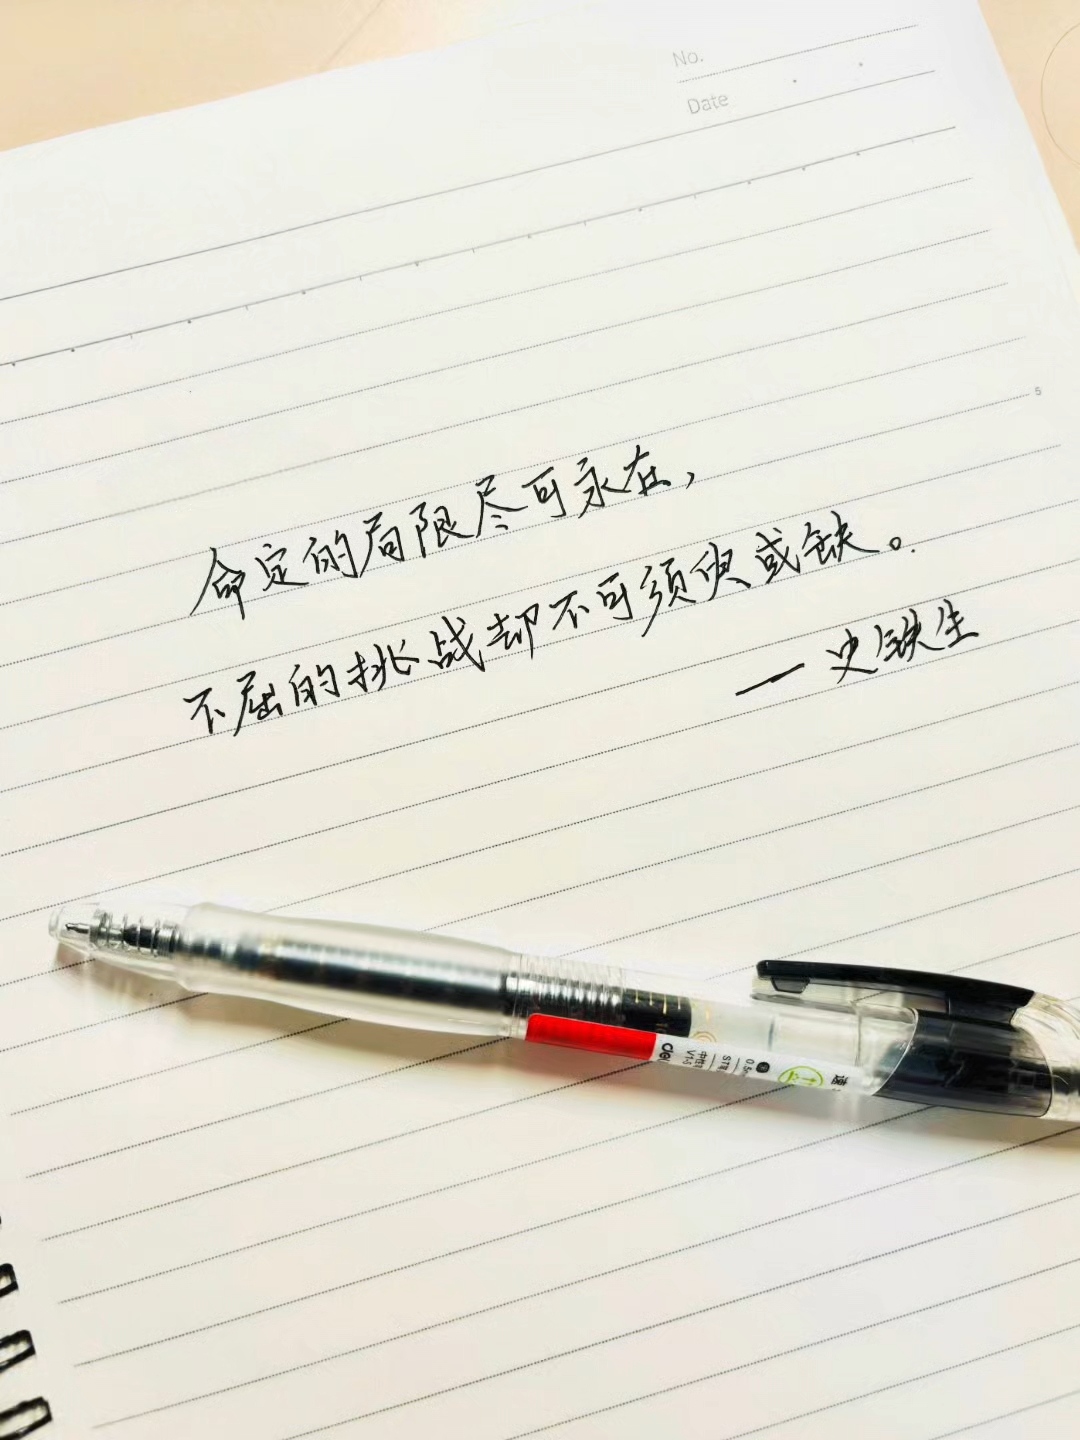 No.
Date
5
命定的局限尽可永在，
不屈的挑战却不可须臾或缺。
— 史铁生
0.5